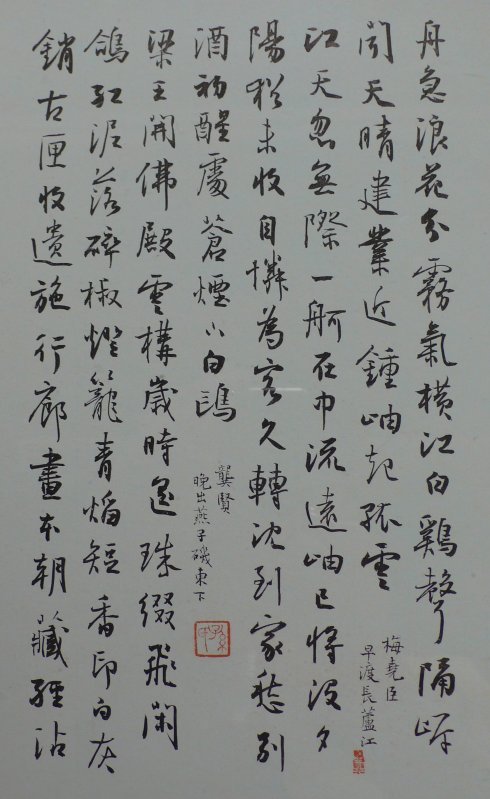 舟急浪花分霧氣横江白鷄聲隔岸
聞天晴建業近鍾岫起孤雲
梅堯臣
早渡長蘆江
江天忽無際一舸在中流遠岫已將沒夕
陽猶未收自憐為客久轉到家愁別
酒初醒處蒼煙下白鷗
龔賢
晚出燕子磯東下
梁王開佛殿雲構歲時遥珠綴飛閑
鴿紅泥落碎椒燈籠青焰短香印白灰
銷古匣收遺施行廊畫本朝藏經沾